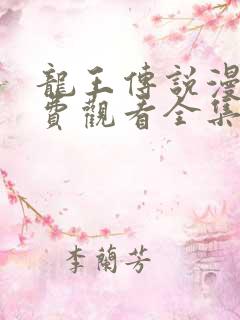 龍王傳說漫
費觀看全集
李蘭芳